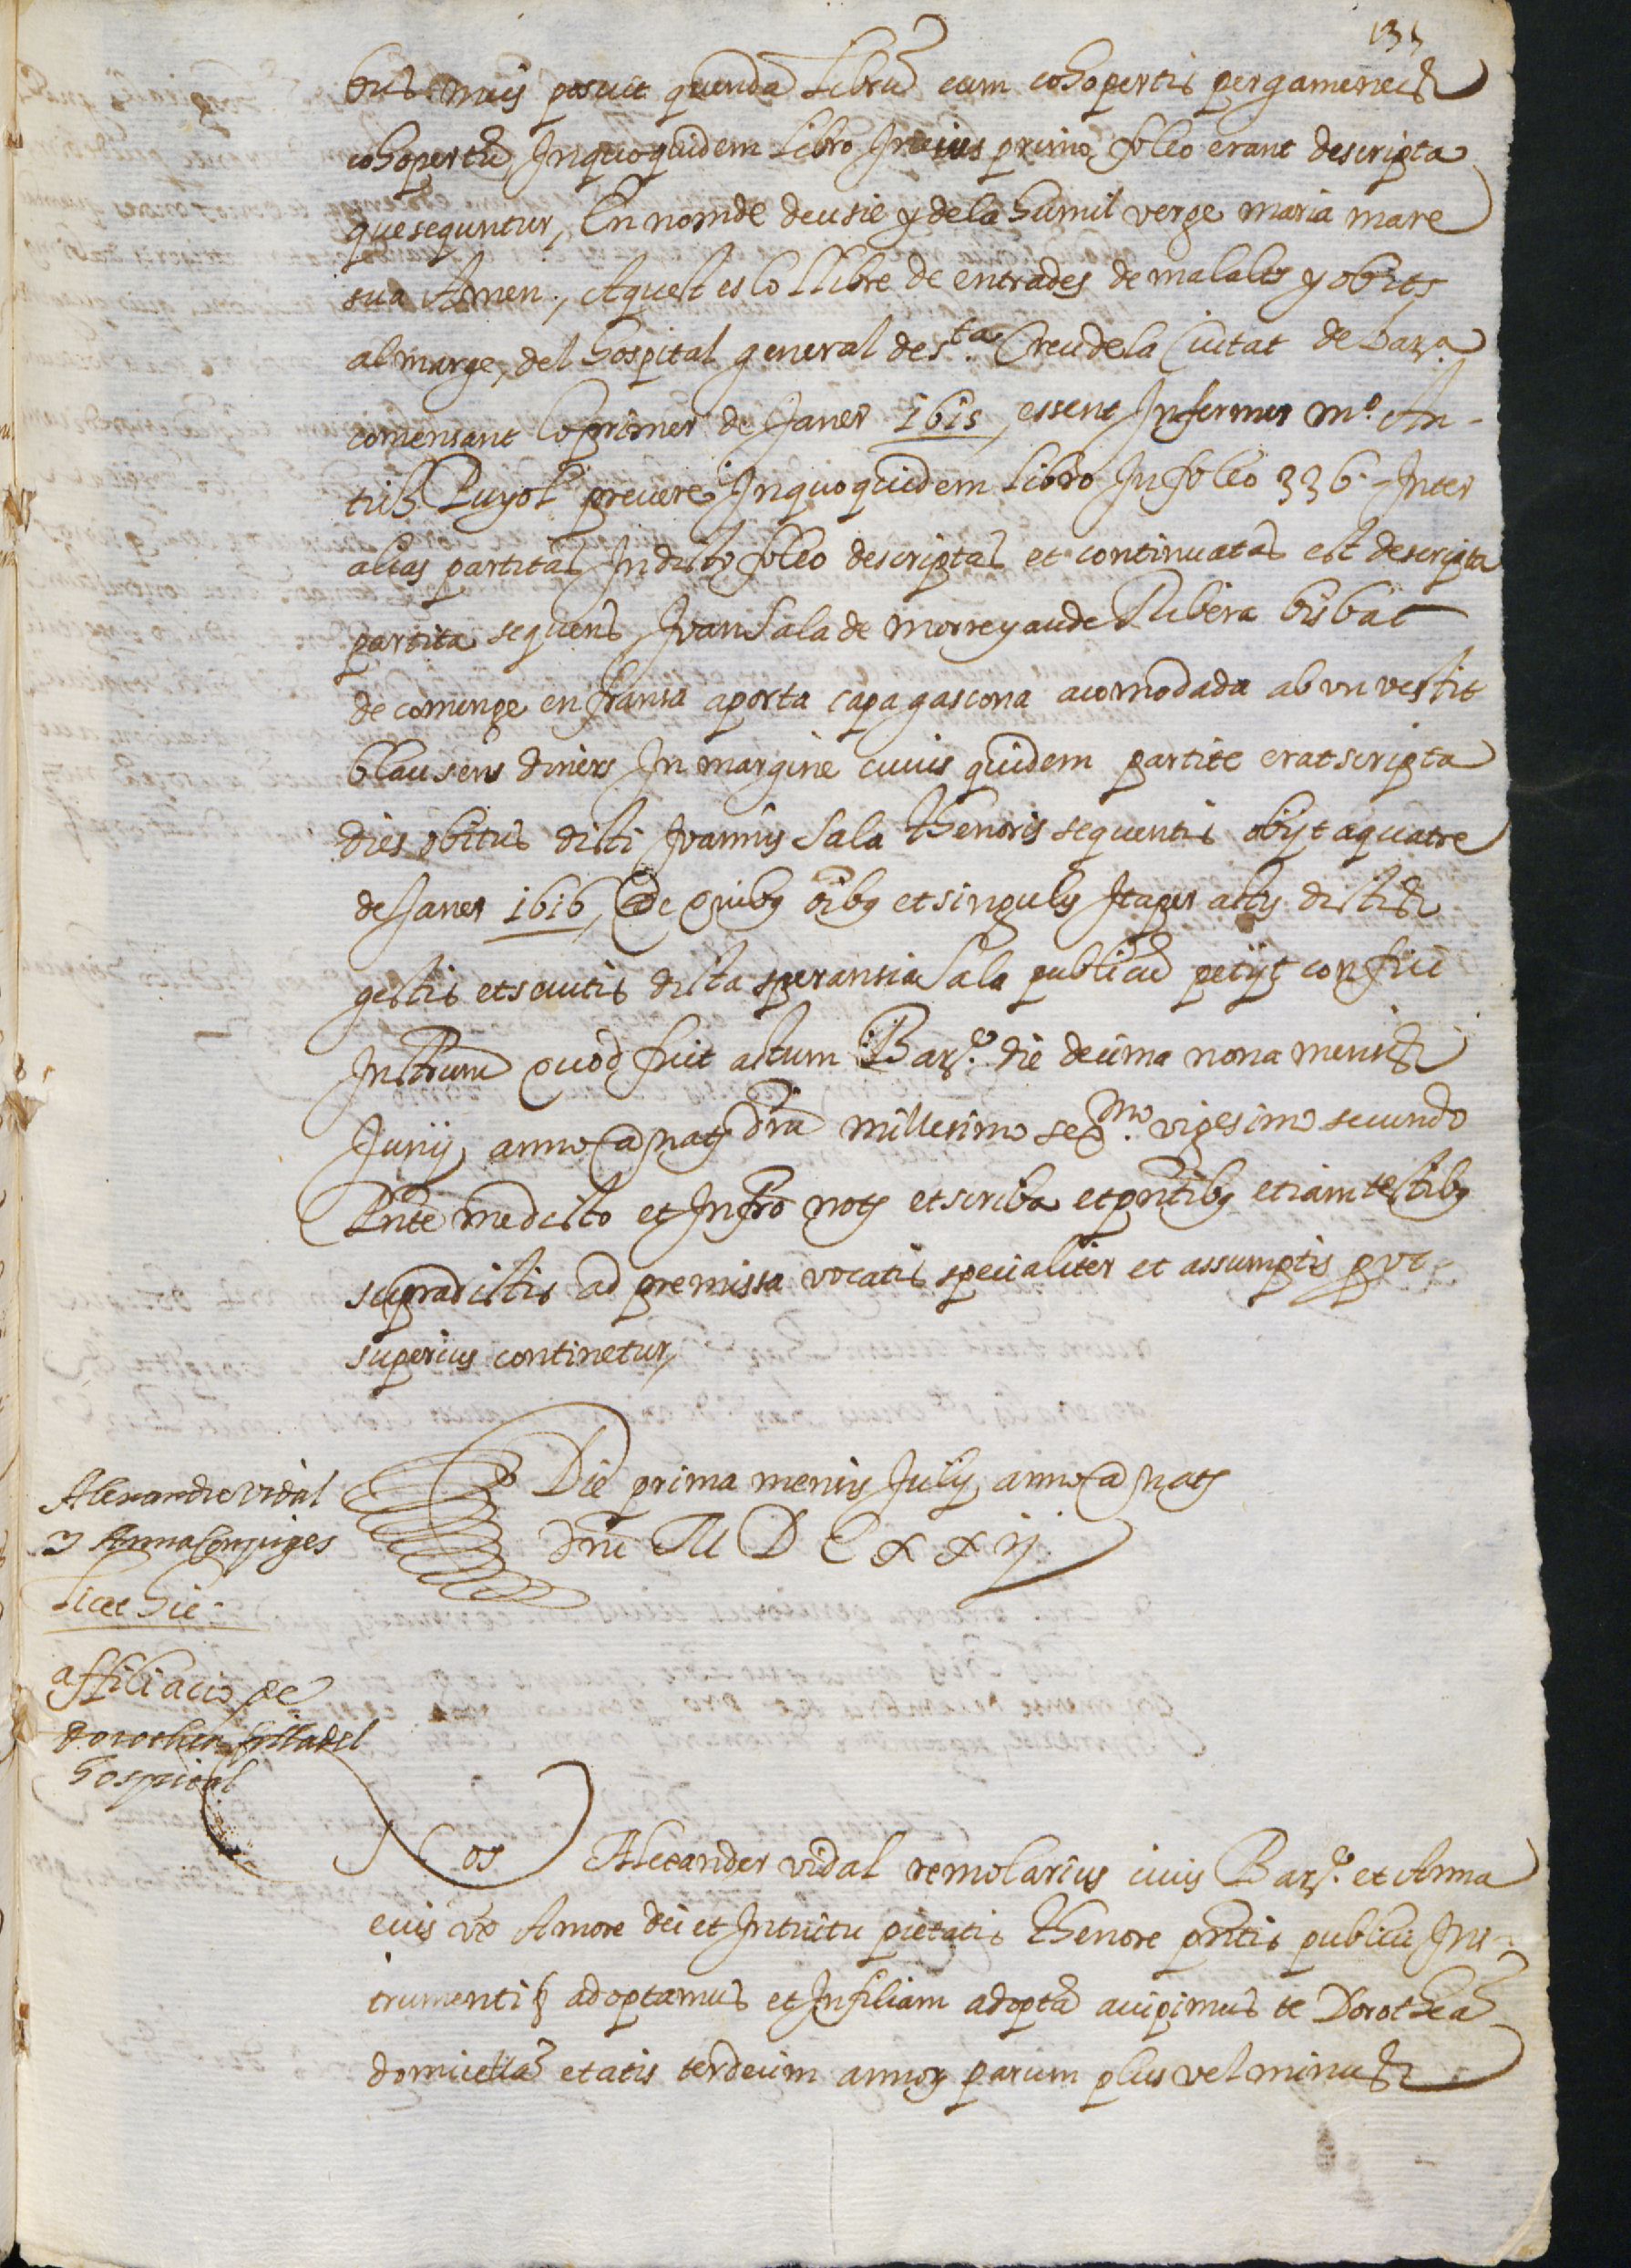 135
bus meis posuit quendã Librũ cum cohopertis pergameneis
cohopertũ, Inquoquidem Libro Incuius primo folio erant descripta
que sequntur, En nom de deu sie y dela humil verge maria mare
sua Amen., Aquest es lo llibre de entrades de malalts y obits
al marge, del hospital general de s.ta Creu dela Ciutat de Barª.
comensant lo primer de Janer 1615, essent Infermer mº. An-
tich Puyol prevere Inquoquidem Libro In folio 336 - Inter
alias partitas In dicto folio descriptas et continuatas est descripta
partita sequens, Juan Sala de morreyau de Ribera bisbat
de comenge en fransa aporta capa gascona acomodada ab vn vestit
blau sens diners In margine cuius quidem partite erat scripta
dies obitus dicti Joannis Sala thenoris sequentis obijt a quatre
de Janer 1616, De quibȝ oĩbȝ et singulis Ita per actis dictis
gestis et secutis dicta speransia Sala publicũ petijt confici
Instrum̃ quod fuit actum Barᵉ. die decima nona mensis
Junij, anno a natᵉ dñi millesimo sexᵐᵒ. vigesimo secundo
Pñte me dicto et Infrõ notᵒ et scriba et pñtibȝ etiam testibȝ
supradictis ad premissa vocatis specialiter et assumptis prot
superius continetur,
Alexandre vidal
y Anna Conjuges
Licet hic.
affiliacio de
Dorothea filla del
hospital
Die prima mensis Julij, anno a natᵉ
dñi M D C x x ij
Nos Alexander vidal remolarius civis Barᵉ. et Anna
eius vx̃ Amore dei et Intuitu pietatis thenore pñtis publici Ins-
trumenti adoptamus et In filiam adoptã accipimus te Dorotheã
domicellã etatis terdecim annoȝ parum plus vel minus